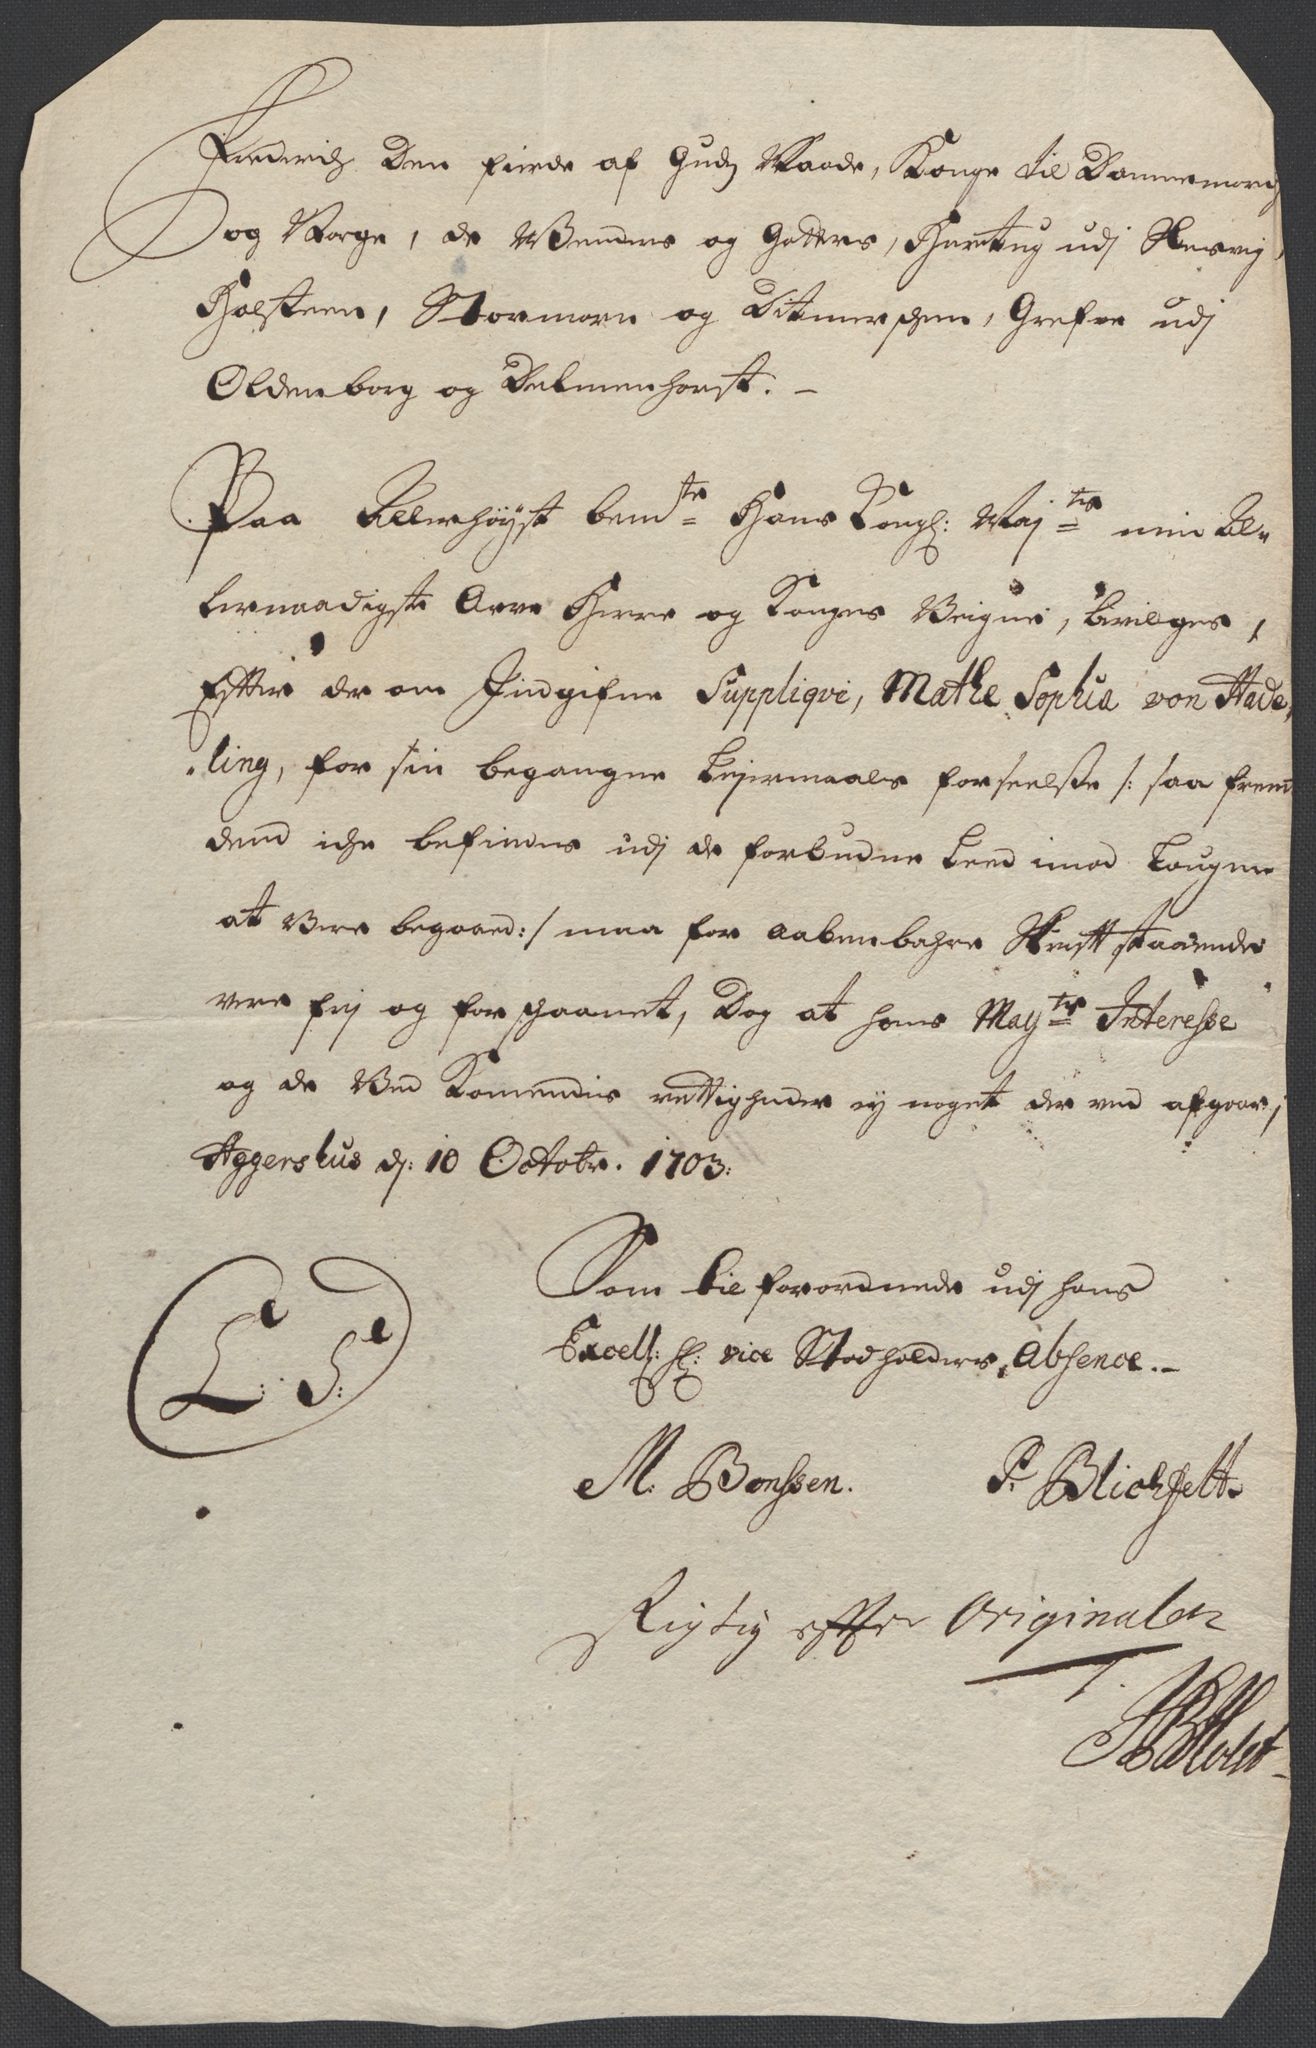 Friderich Den fierde af Guds Naade, Konge til Dannemarch
og Norge, de Wenders og Gotters, Hertug udj Slesvig,
Holsteen, Stormarn og Ditmerschen, Grefve udj
Oldenborg og Delmenhorst. –
Paa Allerhöyst bemte Hans Kongl: Maj:ts min Al-
lernaadigste Arve Herre og Konges Veigne, bevilges,
Efter der om Indgifne Suppliqve, Mathe Sophia von Hade-
ling, for sin begangne Leiermaals forseelße /: saa frem
dend iche befindes udj de forbudne Leed imod Lougen
at Være begaaed :/ maa for aabenbahre Skrift staaende
vere frj og forschaanet, Dog at hans Maytts Interesse
og de Ved Kommendis rettigheder ej noget der ved afgaar,
Aggershus dj: 10 Octobr. 1703:
L: S:
Som til forordnede udj hans
Excell: Hr: vice Stadholders, Absence. –
M: Bonssen. P. Blichfelt.
Rigtig efter Originalen